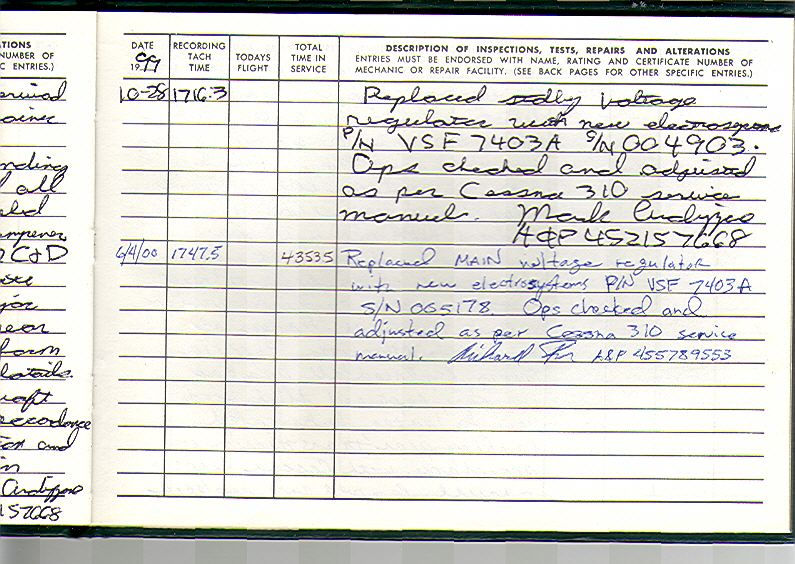 TIONS
NUMBER OF
C ENTRIES.)
all
C&D
form
and
in
157668
DATE
1999
RECORDING
TACH
TIME
TODAYS
FLIGHT
TOTAL
TIME IN
SERVICE
DESCRIPTION OF INSPECTIONS, TESTS, REPAIRS AND ALTERATIONS
ENTRIES MUST BE ENDORSED WITH NAME, RATING AND CERTIFICATE NUMBER OF
MECHANIC OR REPAIR FACILITY. (SEE BACK PAGES FOR OTHER SPECIFIC ENTRIES.)
10-28 1716.3 Replaced stdby voltage
regulator with new electrosystems
P/N VSF 7403A S/N 004903.
Ops checked and adjusted
as per Cessna 310 service
manual. Mark
A&P 452157668
6/4/00 1747.5 4353.5 Replaced MAIN voltage regulator
with new electrosystems P/N VSF 7403A
S/N 005178. Ops checked and
adjusted as per Cessna 310 service
manual. Richard A&P 455789553